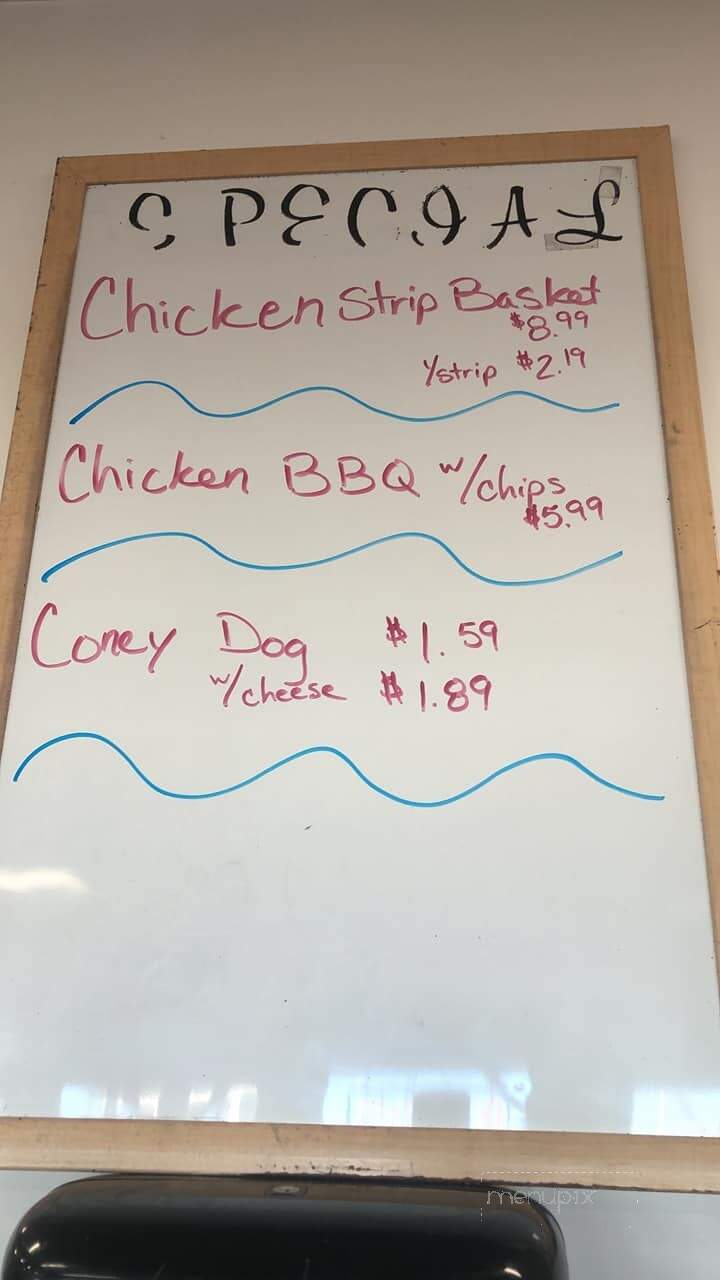 SPECIAL
Chicken Strip Basket
$8.99
/strip $2.19
Chicken BBQ w/chips
$5.99
Coney Dog $1.59
w/cheese $1.89
menupix